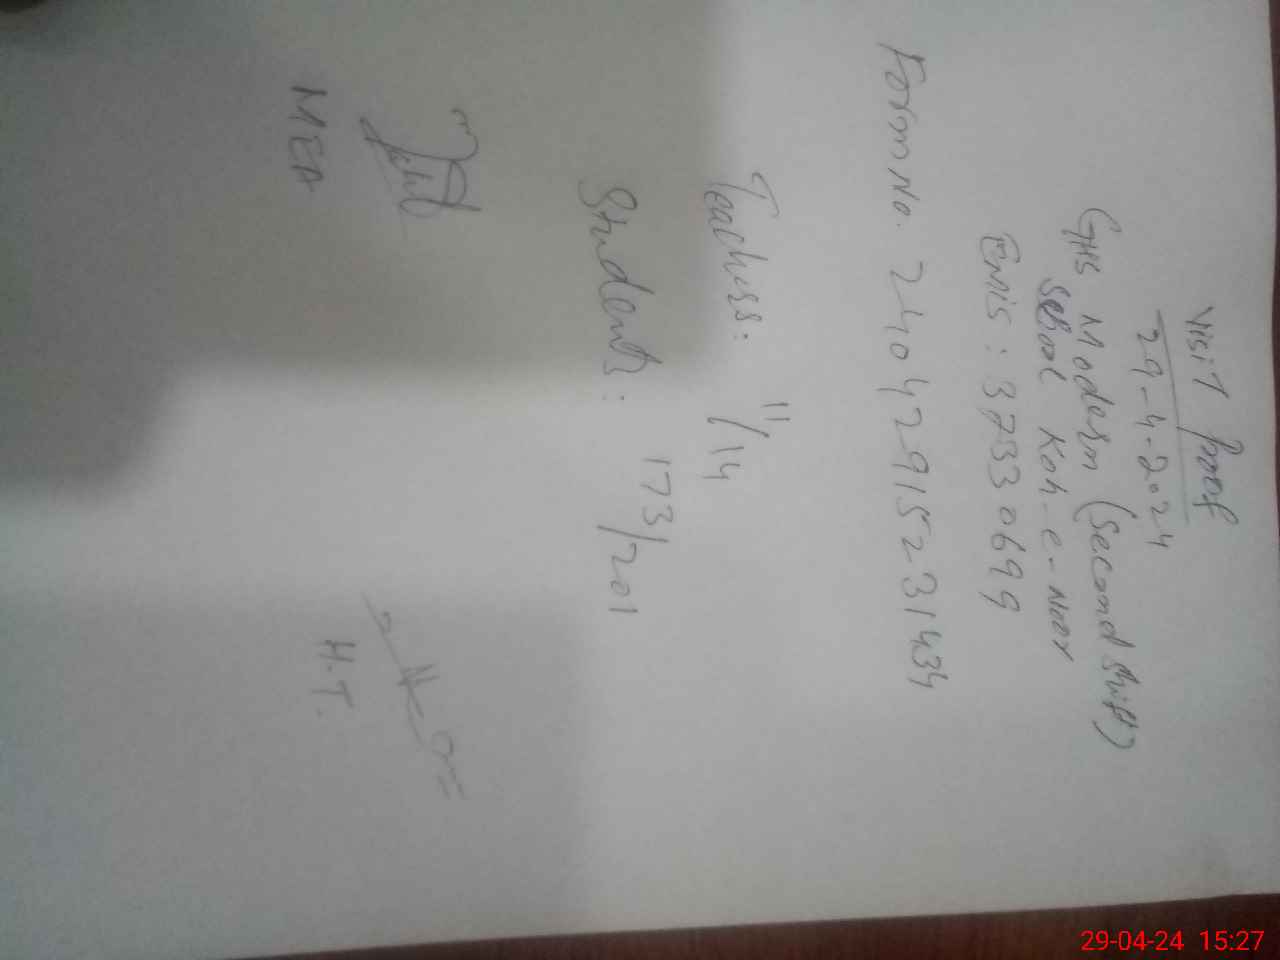 Visit Proof
29-4-2024
GHS Modern (Second Shift)
School Koh-e-Noor
EMIS: 37330699
Form No. 24042915231434
Teachers: 11/14
Students: 173/201
MEA
H.T.
29-04-24 15:27